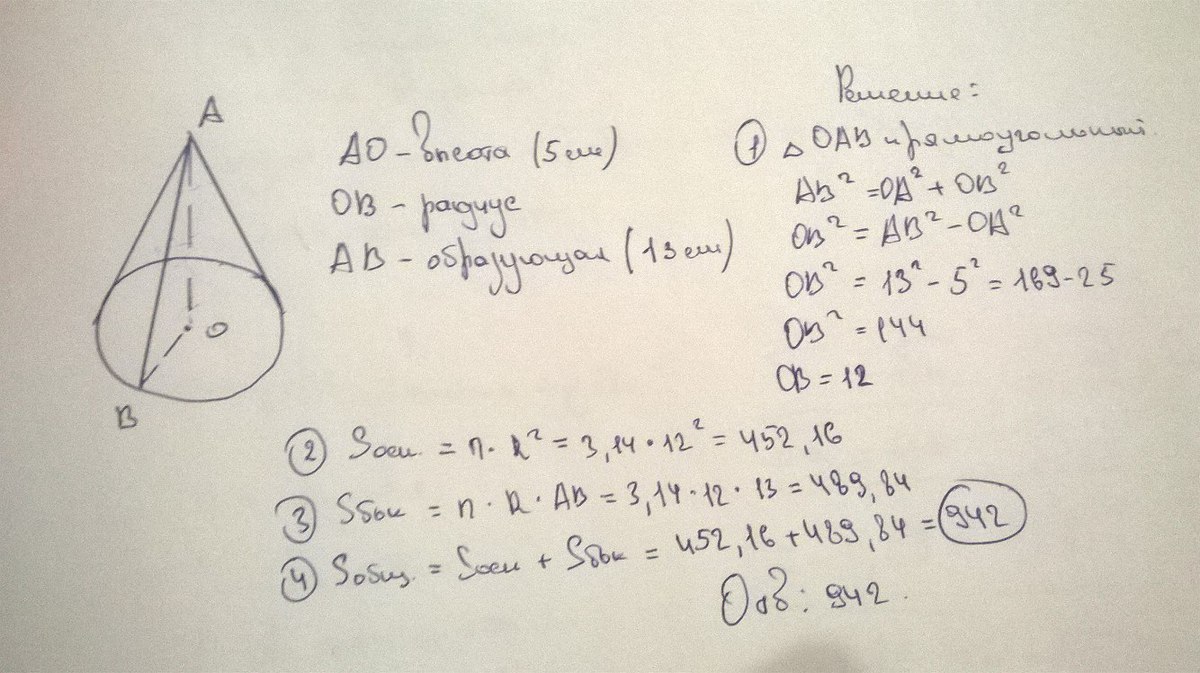 A
O
B
AO - высота (5 см)
OB - радиус
AB - образующая (13 см)
Решение:
① △ OAB прямоугольный.
AB² = OA² + OB²
OB² = AB² - OA²
OB² = 13² - 5² = 169 - 25
OB² = 144
OB = 12
② Sосн. = π · R² = 3,14 · 12² = 452,16
③ Sбок = π · R · AB = 3,14 · 12 · 13 = 489,84
④ Sобщ. = Sосн + Sбок = 452,16 + 489,84 = 942
Отв: 942.